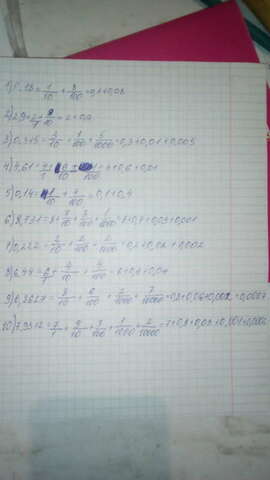 1) 0,13 = 1/10 + 3/100 = 0,1+0,03
2) 2,9 = 2/1 + 9/10 = 2+0,9
3) 0,315 = 3/10 + 1/100 + 5/1000 = 0,3+0,01+0,005
4) 4,61 = 4/1 + 6/10 + 1/100 = 4+0,6+0,01
5) 0,14 = 1/10 + 4/100 = 0,1+0,4
6) 8,731 = 8 + 7/10 + 3/100 + 1/1000 = 8+0,7+0,03+0,001
7) 0,222 = 2/10 + 2/100 + 2/1000 = 0,2+0,02+0,002
8) 6,44 = 6/1 + 4/10 + 4/100 = 6+0,4+0,04
9) 0,3627 = 3/10 + 6/100 + 2/1000 + 7/10000 = 0,3+0,06+0,002+0,0007
10) 7,9312 = 7/1 + 9/10 + 3/100 + 1/1000 + 2/10000 = 7+0,9+0,03+0,001+0,0002